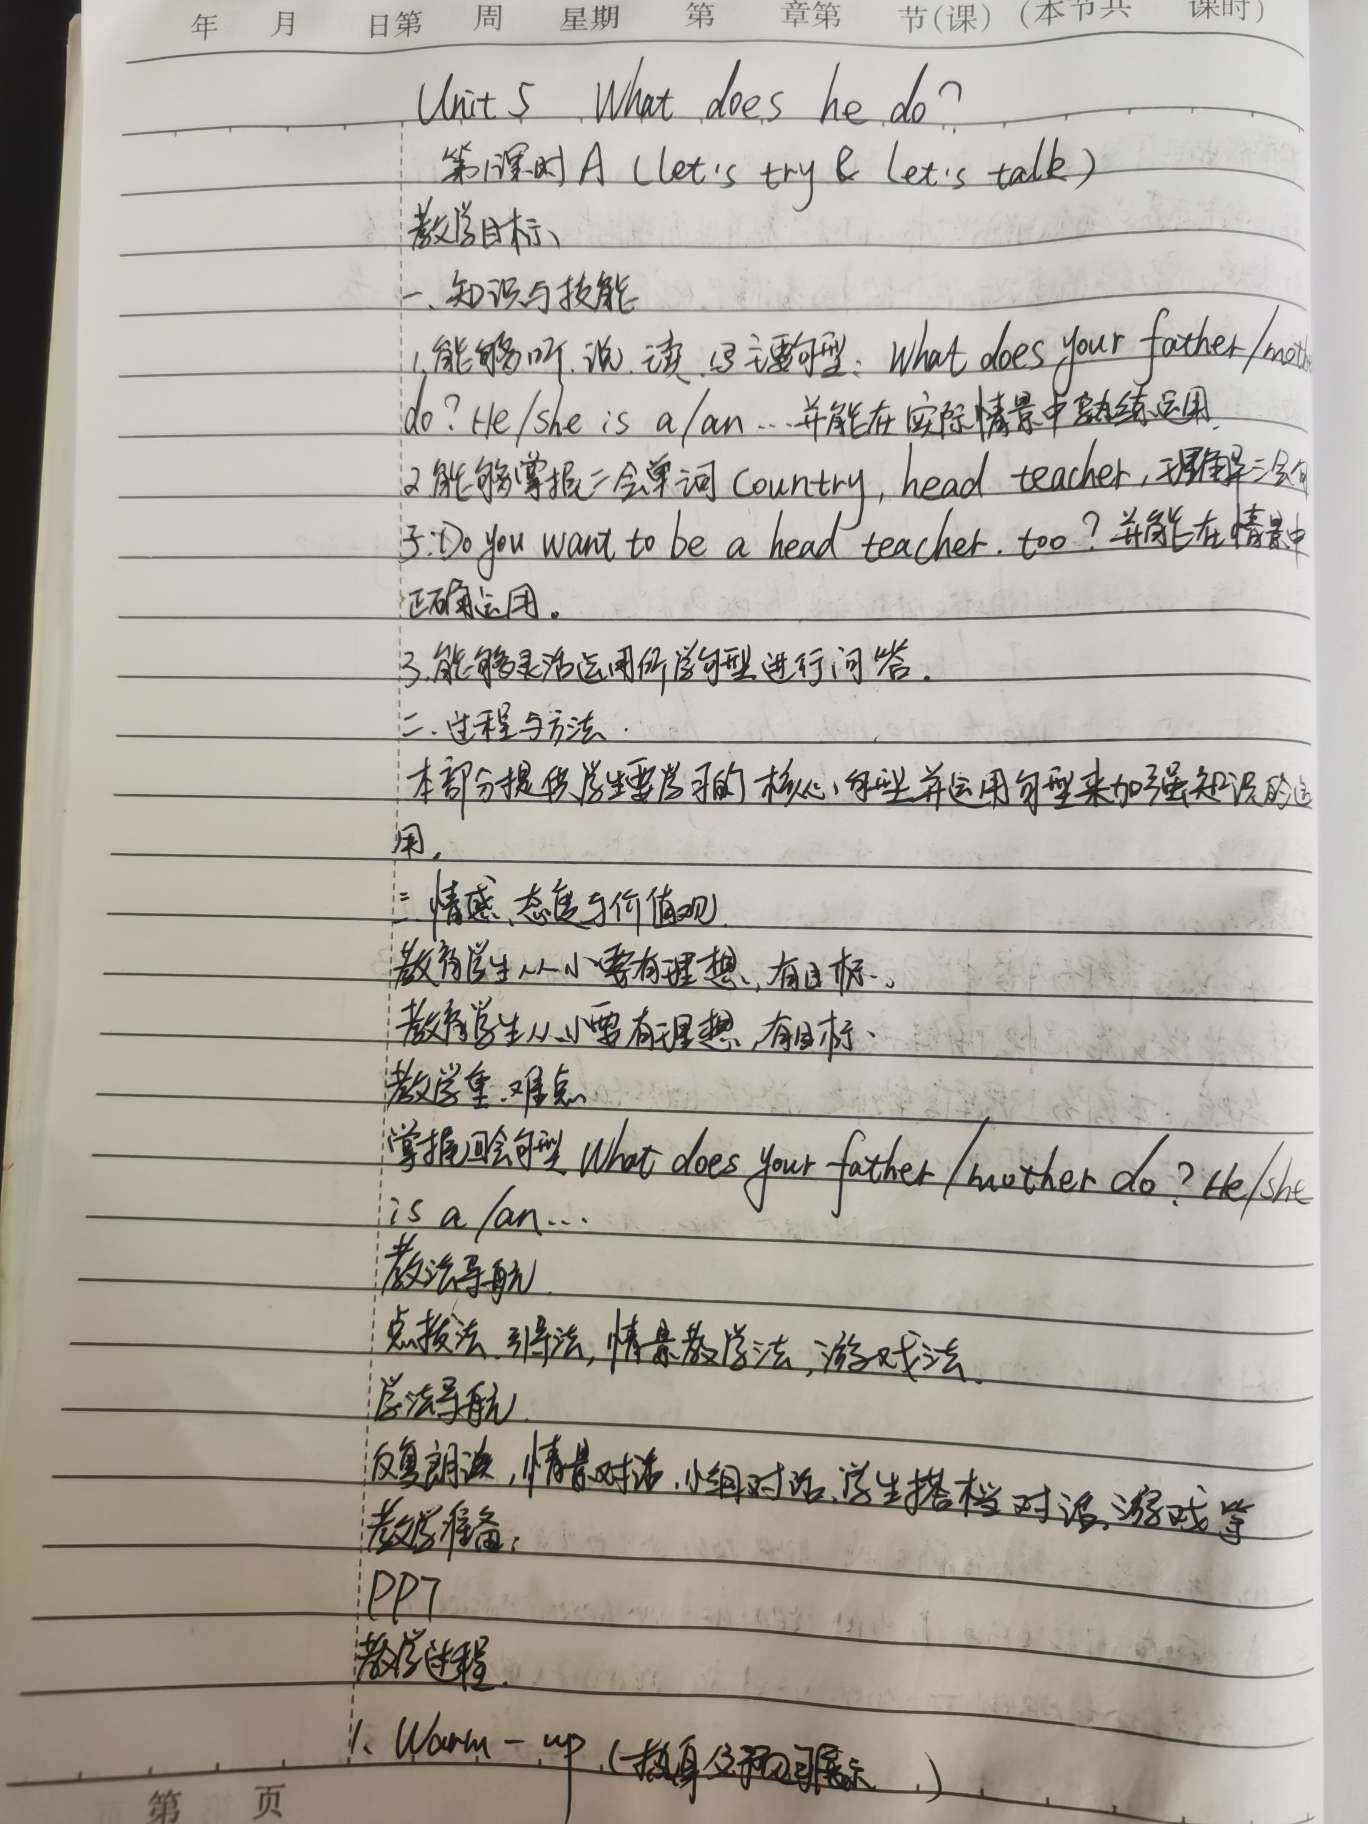 年 月 日第 周 星期 第 章第 节(课) (本节共 课时)
Unit 5 What does he do?
第1课时 A (Let's try & Let's talk)
教学目标、
一、知识与技能
1.能够听、说、读、写主要句型: What does your father/moth
do? He/she is a/an ...并能在实际情景中熟练运用.
2.能够掌握二会单词 country, head teacher, 理解三会句
子:Do you want to be a head teacher, too? 并能在情景中
正确运用。
3.能够灵活运用所学句型进行问答.
二、过程与方法.
本部分提供学生要学习的核心句型并运用句型来加强知识的运
用.
三.情感、态度与价值观.
教育学生从小要有理想,有目标。
教育学生从小要有理想,有目标、
教学重、难点
掌握四会句型 What does your father/mother do? He/she
is a/an...
教法导航.
点拨法、引导法,情景教学法,游戏法.
学法导航.
反复朗读,情景对话、小组对话、学生搭档对话、游戏等
教学准备:
PPT
教学过程.
1、Warm-up (热身及预习展示)
第 页